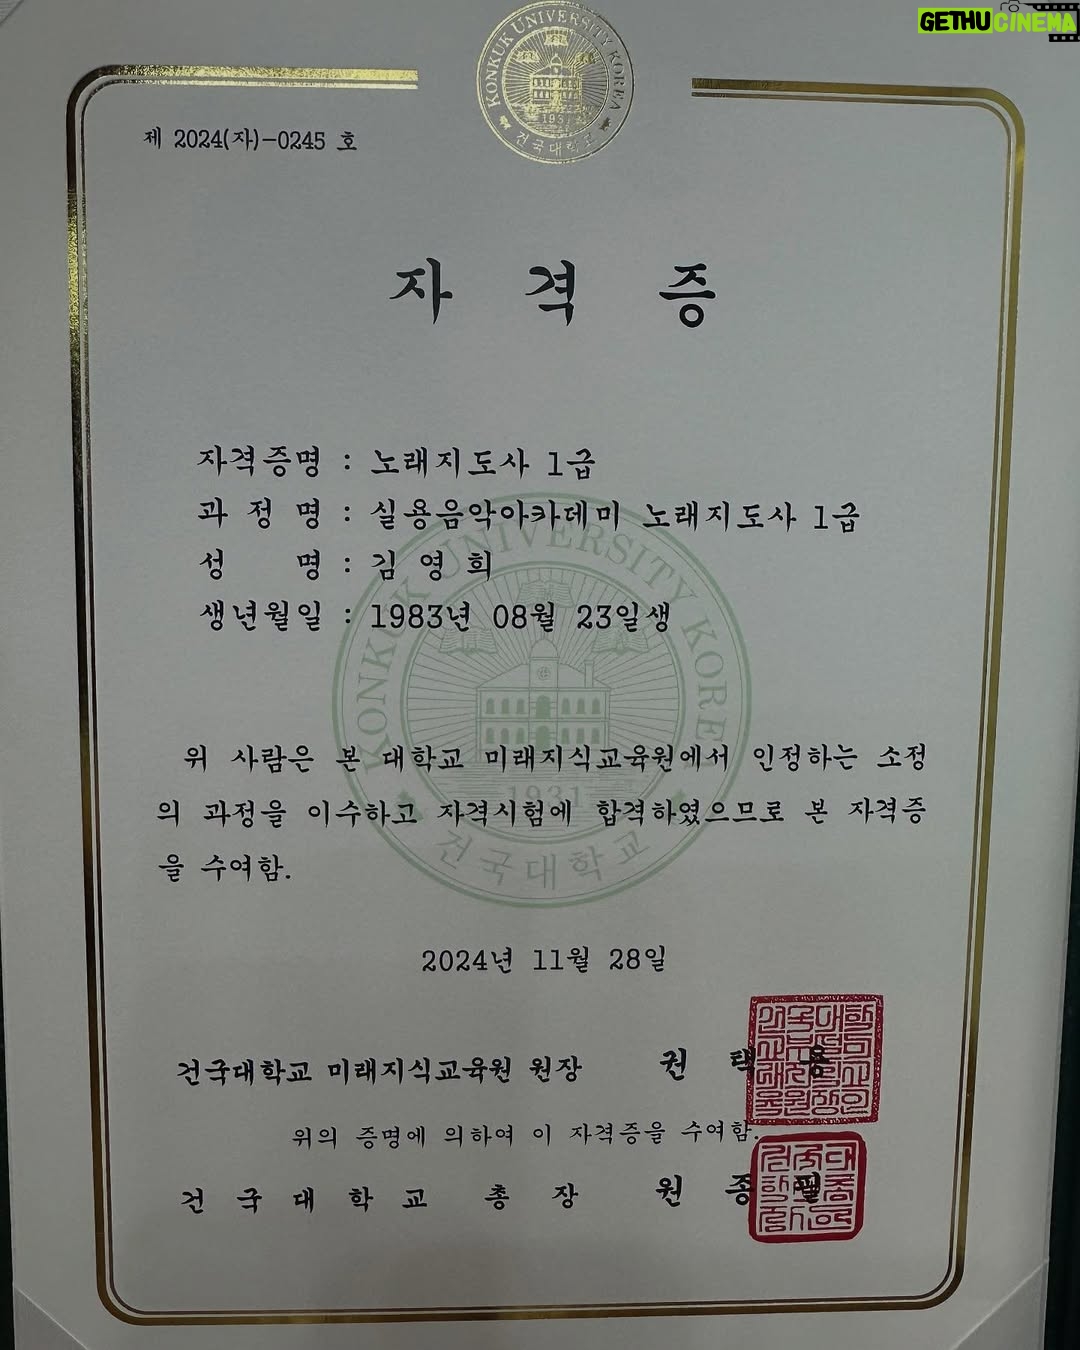 GETHUCINEMA
KONKUK UNIVERSITY KOREA
1931
건국대학교
제 2024(자)-0245 호
자 격 증
자격증명 : 노래지도사 1급
과 정 명 : 실용음악아카데미 노래지도사 1급
성 명 : 김 영 희
생년월일 : 1983년 08월 23일생
KONKUK UNIVERSITY KOREA
위 사람은 본 대학교 미래지식교육원에서 인정하는 소정
의 과정을 이수하고 자격시험에 합격하였으므로 본 자격증
을 수여함.
1931
건국대학교
2024년 11월 28일
건국대학교 미래지식교육원 원장 권 택 용
위의 증명에 의하여 이 자격증을 수여함.
건 국 대 학 교 총 장 원 종 필